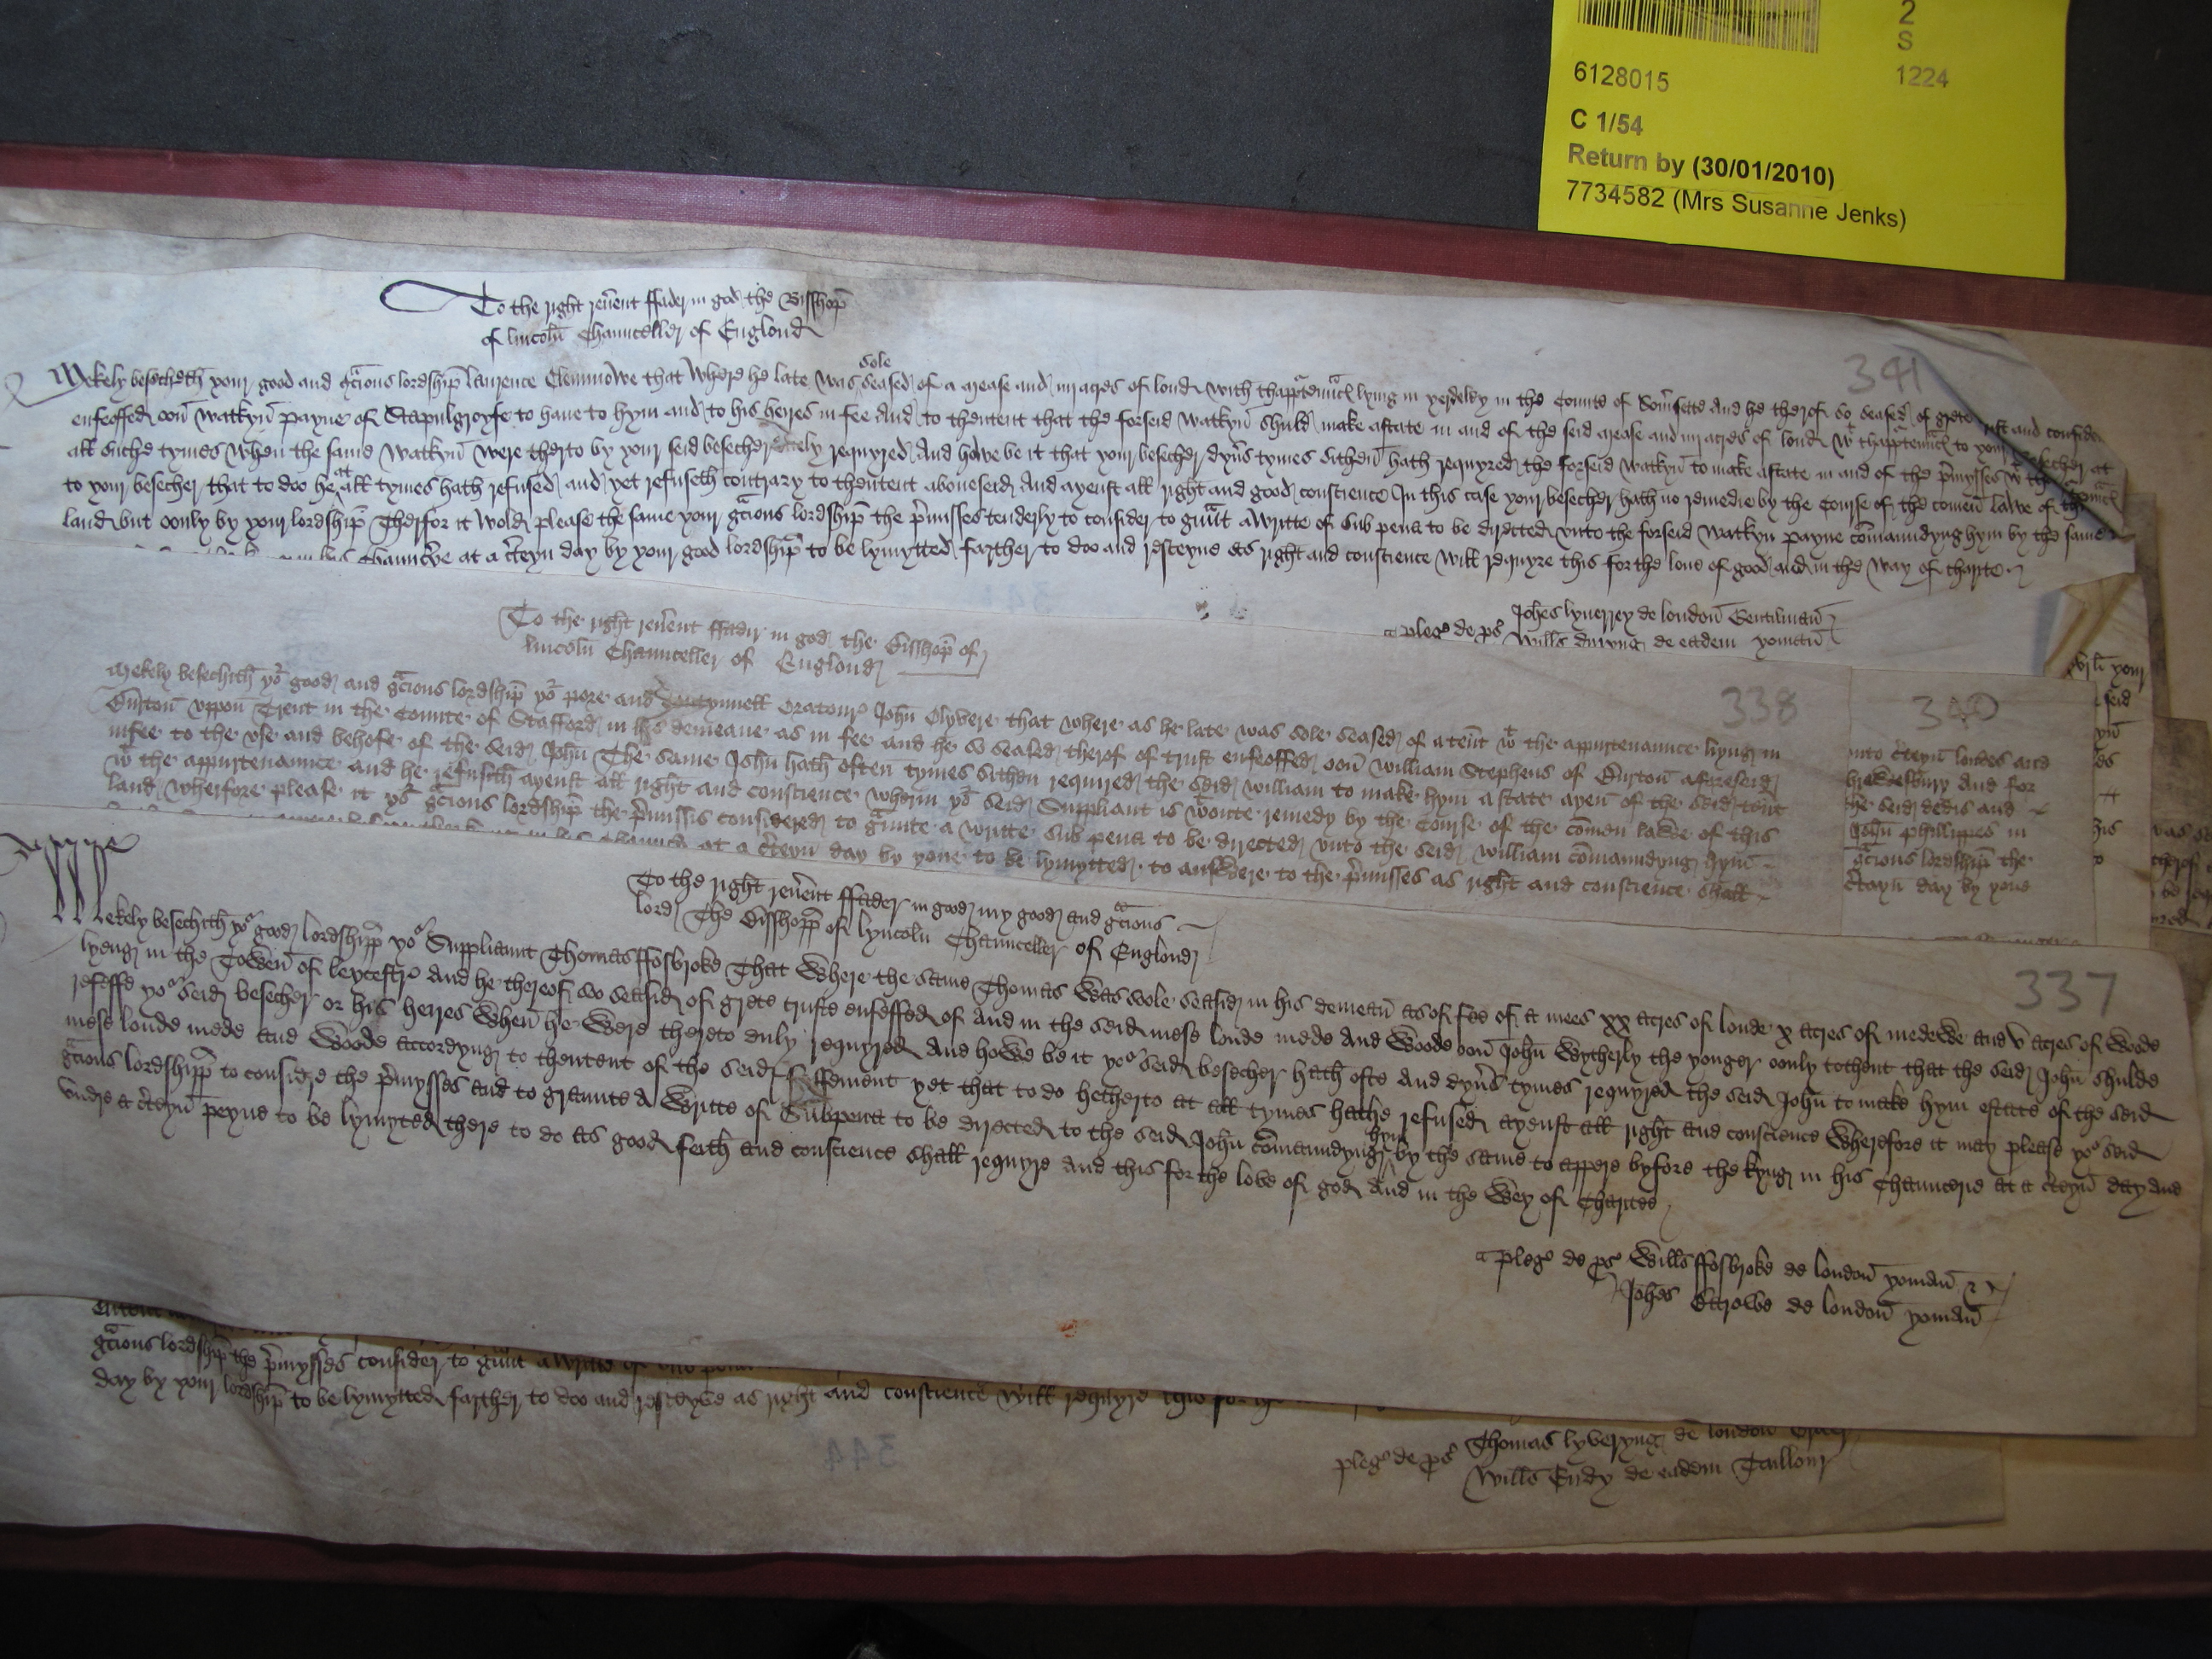 2
S
6128015 1224
C 1/54
Return by (30/01/2010)
7734582 (Mrs Susanne Jenks)
341
To the right reu'ent ffader in god the Bisshop
of lincoln Chaunceller of Englond
Mekely besecheth your good and gracious lordship laurence Clemmowe that where he late was sole seased of a mease and iiij acres of lond with thapp'tenunc' lying in yerdeley in the Counte of Som'sette And he therof so seased of grete trust and confidence
enfeoffed oon watkyn payne of Stapulgroyfe to haue to hym and to his heires in fee And to thentent that the forseid watkyn shuld make astate in and of the seid mease and iiij acres of lond wt thapp'tenunc' to your besecher at
all suche tymes when the same watkyn were therto by your seid besecher requyred And howe be it that your besecher dyu's tymes sithen hath requyred the forseid watkyn to make astate in and of the p'mysses wt the
to your besecher that to doo he at all tymes hath refused and yet refuseth contrary to thentent aboueseid And ayenst all right and good conscience In this case your besecher hath no remedie by the course of the comen lawe of this
land but oonly by your lordship Therfor it wold please the same your gracious lordship the p'misses tenderly to consider to graunt a writte of sub pena to be directed vnto the forseid watkyn payne comaundyng hym by the same
chaunc'ie at a c'teyn day by your good lordship to be lymytted farther to doo and resceyue as right and conscience will requyre this for the loue of good and in the way of charite
pleg' de ps' Joh'es lynerrey de london Gentilman
Will's duryng de eadem yoman
338
To the right reu'ent ffadir in god the Bisshop of
lincoln Chaunceller of Englond
Mekely besechith yor good and gracious lordship yor pore and contynuell Oratour John Olyvere that where as he late was sole seased of a ten't wt the appurtenaunce liyng in
Burton vppon Trent in the Counte of Stafford in his demeane as in fee and he so seased therof of trust enfeoffed oon william Stephens of Burton aforeseid
in fee to the vse and behofe of the seid John The same John hath often tymes sithen required the seid william to make hym astate ayen of the seid ten't
wt the appurtenaunce and he refusith ayenst all right and conscience wherin yor seid Suppliant is wtoute remedy by the course of the comen lawe of this
land wherfore please it yor gracious lordship the p'missis considered to graunte a writte sub pena to be directed vnto the seid william comaundyng hym
at a c'teyn day by youe to be lymytted to answere to the p'misses as right and conscience shall
340
into c'teyn londes and
and for
the seid dedis and
John phillippes in
gracious lordship the
c'teyn day by youe
your
seid
his
337
To the right reu'ent ffader in good my good and gracious
lord The Bisshopp of lyncoln Chaunceller of Englond
Mekely besechith yor good lordshipp yor Suppliaunt Thomas ffosbroke That Where the same Thomas Was sole seasid in his demean as of fee of a mees xx acres of londe x acres of medewe and v acres of Wode
lyeng in the Towen of leycestre And he thereof so seasid of grete truste enfeffed of and in the seid mese londe mede And Woode oon John Wytherly the yonger oonly tothent that the seid John shulde
refeffe yor seid besecher or his heires When he Were thereto duly requyred And howe be it yor seid besecher hath ofte And dyu's tymes requyred the seid John to make hym estate of the seid
mese londe mede and Woode accordyng to thentent of the seid feffement yet that to do hetherto at all tymes hathe refused ayenst all right and conscience Wherefore it may please yor seid
gracious lordshipp to considre the p'mysses and to graunte A Writte of Subpena to be directed to the seid John comaundyng hym by the same to appere byfore the kyng in his Chauncerie at a c'teyn day and
vndre a c'teyn peyne to be lymyted there to do as good feith and conscience shall requyre And this for the love of god And in the Wey of Charitee
pleg' de ps' Will's ffosbroke de london yoman &
Joh'es Strowe de london yoman
gracious lordship the p'mysses consider to graunt a writte of sub pena
day by your lordship to be lymytted farther to doo and resceyve as right and conscience will requyre this for the
344
pleg' de ps' Thomas lyveryng de london
Will's Endy de eadem Taillour